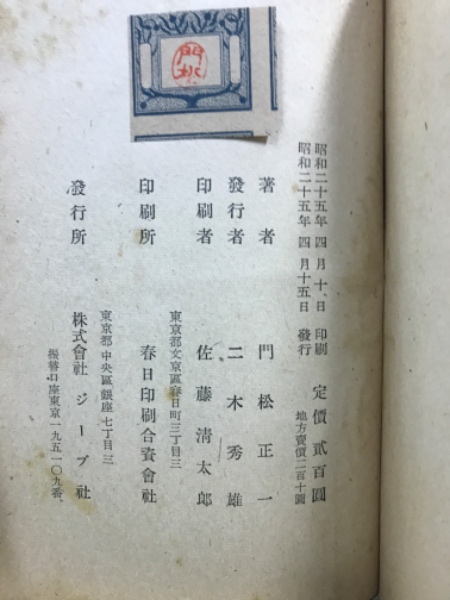 昭和二十五年 四月十、日 印刷
昭和二十五年 四月十五日 發行
定價 貳百圓
地方賣價二百十圓
著者 門松正一
發行者 二木秀雄
印刷者 佐藤淸太郎
東京都文京區春日町三丁目三
印刷所 春日印刷合資會社
東京都中央區銀座七丁目三
發行所 株式會社 ジープ社
振替口座東京一九五一〇九番
門松